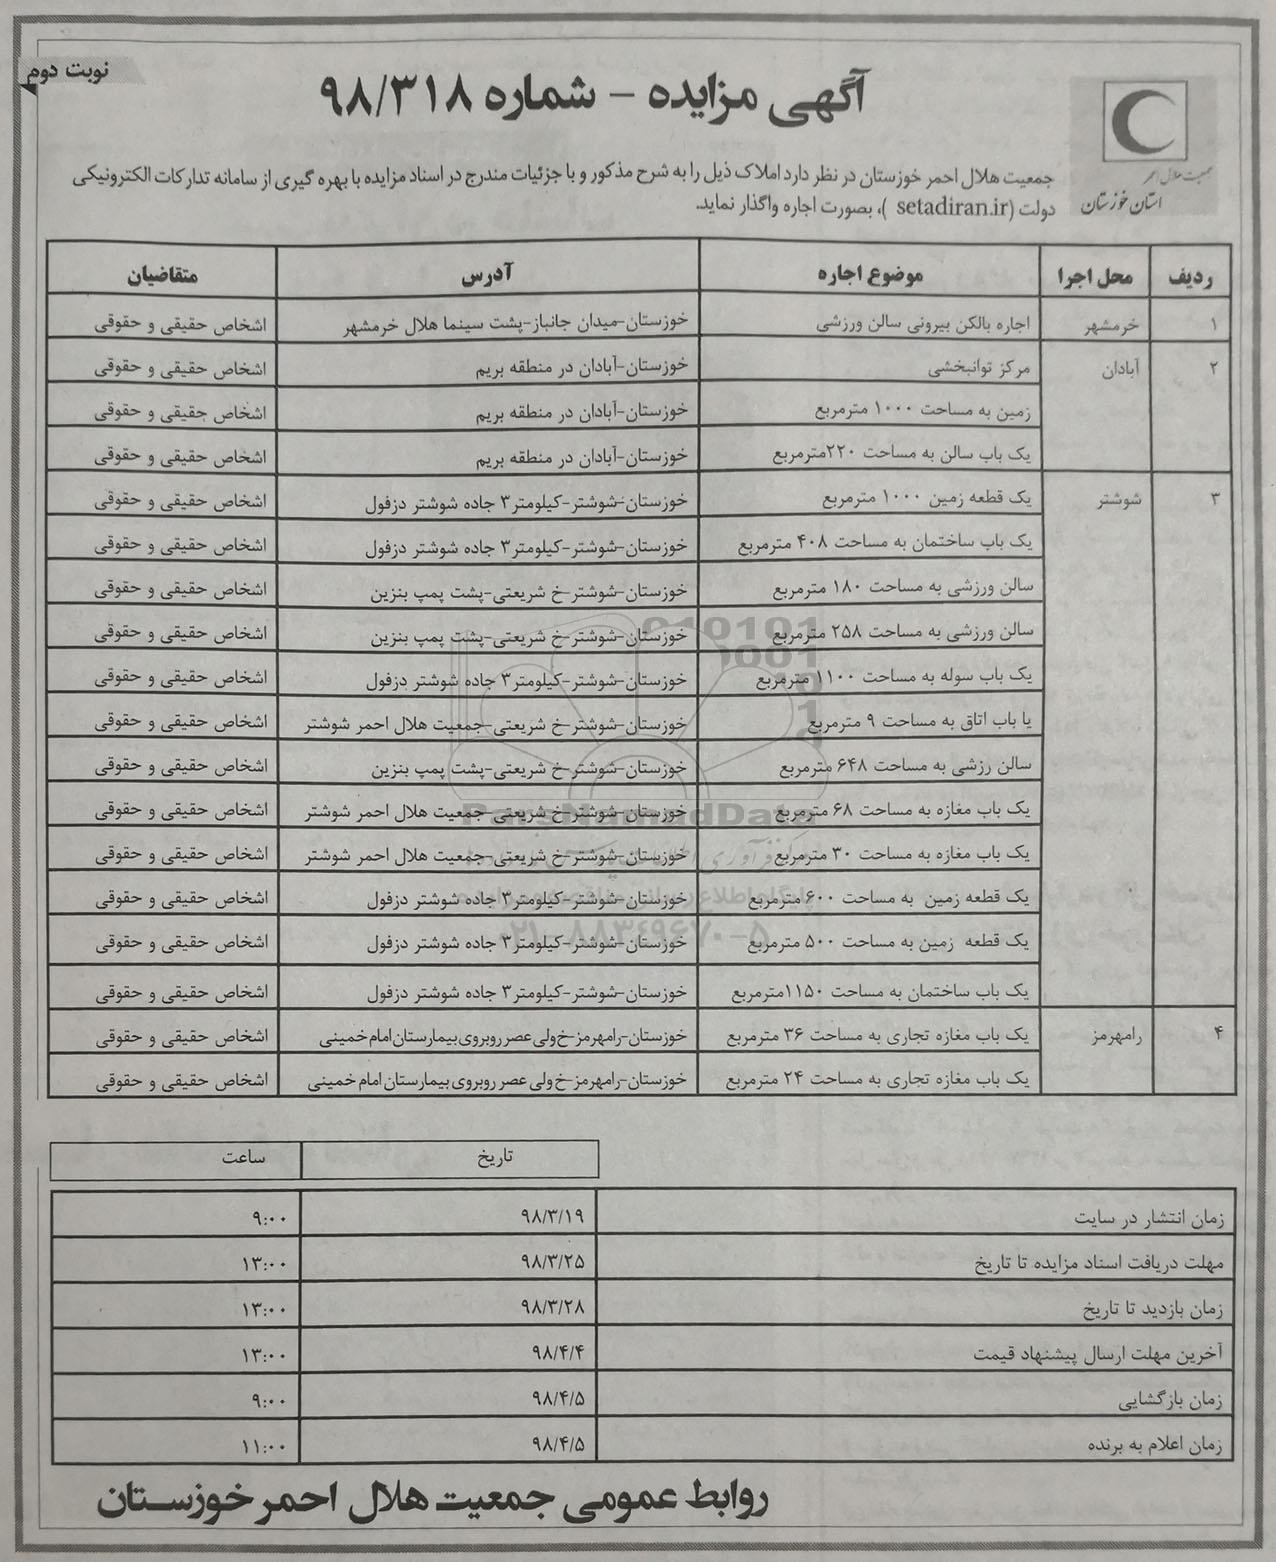 نوبت دوم
آگهی مزایده – شماره ۹۸/۳۱۸
جمعیت هلال احمر
استان خوزستان
جمعیت هلال احمر خوزستان در نظر دارد املاک ذیل را به شرح مذکور و با جزئیات مندرج در اسناد مزایده با بهره گیری از سامانه تدارکات الکترونیکی
دولت (setadiran.ir )، بصورت اجاره واگذار نماید.
ردیف محل اجرا موضوع اجاره آدرس متقاضیان
۱ خرمشهر اجاره بالکن بیرونی سالن ورزشی خوزستان-میدان جانباز-پشت سینما هلال خرمشهر اشخاص حقیقی و حقوقی
۲ آبادان مرکز توانبخشی خوزستان-آبادان در منطقه بریم اشخاص حقیقی و حقوقی
زمین به مساحت ۱۰۰۰ مترمربع خوزستان-آبادان در منطقه بریم اشخاص حقیقی و حقوقی
یک باب سالن به مساحت ۲۲۰مترمربع خوزستان-آبادان در منطقه بریم اشخاص حقیقی و حقوقی
۳ شوشتر یک قطعه زمین ۱۰۰۰ مترمربع خوزستان-شوشتر-کیلومتر۳ جاده شوشتر دزفول اشخاص حقیقی و حقوقی
یک باب ساختمان به مساحت ۴۰۸ مترمربع خوزستان-شوشتر-کیلومتر۳ جاده شوشتر دزفول اشخاص حقیقی و حقوقی
سالن ورزشی به مساحت ۱۸۰ مترمربع خوزستان-شوشتر-خ شریعتی-پشت پمپ بنزین اشخاص حقیقی و حقوقی
سالن ورزشی به مساحت ۲۵۸ مترمربع خوزستان-شوشتر-خ شریعتی-پشت پمپ بنزین اشخاص حقیقی و حقوقی
یک باب سوله به مساحت ۱۱۰۰ مترمربع خوزستان-شوشتر-کیلومتر۳ جاده شوشتر دزفول اشخاص حقیقی و حقوقی
یا باب اتاق به مساحت ۹ مترمربع خوزستان-شوشتر-خ شریعتی-جمعیت هلال احمر شوشتر اشخاص حقیقی و حقوقی
سالن رزشی به مساحت ۶۴۸ مترمربع خوزستان-شوشتر-خ شریعتی-پشت پمپ بنزین اشخاص حقیقی و حقوقی
یک باب مغازه به مساحت ۶۸ مترمربع خوزستان-شوشتر-خ شریعتی-جمعیت هلال احمر شوشتر اشخاص حقیقی و حقوقی
یک باب مغازه به مساحت ۳۰ مترمربع خوزستان-شوشتر-خ شریعتی-جمعیت هلال احمر شوشتر اشخاص حقیقی و حقوقی
یک قطعه زمین به مساحت ۶۰۰ مترمربع خوزستان-شوشتر-کیلومتر۳ جاده شوشتر دزفول اشخاص حقیقی و حقوقی
یک قطعه زمین به مساحت ۵۰۰ مترمربع خوزستان-شوشتر-کیلومتر۳ جاده شوشتر دزفول اشخاص حقیقی و حقوقی
یک باب ساختمان به مساحت ۱۱۵۰مترمربع خوزستان-شوشتر-کیلومتر۳ جاده شوشتر دزفول اشخاص حقیقی و حقوقی
۴ رامهرمز یک باب مغازه تجاری به مساحت ۳۶ مترمربع خوزستان-رامهرمز-خ ولی عصر روبروی بیمارستان امام خمینی اشخاص حقیقی و حقوقی
یک باب مغازه تجاری به مساحت ۲۴ مترمربع خوزستان-رامهرمز-خ ولی عصر روبروی بیمارستان امام خمینی اشخاص حقیقی و حقوقی
ParsNamadData
۰۲۱-۸۸۳۴۹۶۷۰-۵
تاریخ ساعت
زمان انتشار در سایت ۹۸/۳/۱۹ ۹:۰۰
مهلت دریافت اسناد مزایده تا تاریخ ۹۸/۳/۲۵ ۱۳:۰۰
زمان بازدید تا تاریخ ۹۸/۳/۲۸ ۱۳:۰۰
آخرین مهلت ارسال پیشنهاد قیمت ۹۸/۴/۴ ۱۳:۰۰
زمان بازگشایی ۹۸/۴/۵ ۹:۰۰
زمان اعلام به برنده ۹۸/۴/۵ ۱۱:۰۰
روابط عمومی جمعیت هلال احمر خوزستان